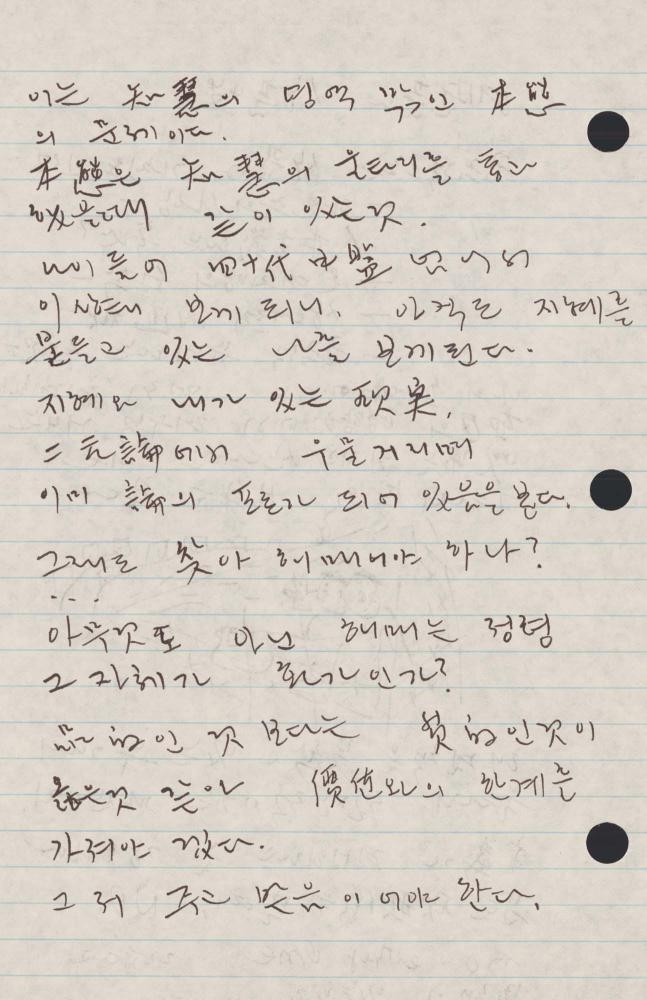 이는 知慧의 영역 밖인 本態
의 문제이다.
本態은 知慧의 울타리를 통과
했을때 같이 있는것.
나이 들어 四十代 中盤 넘어서
이상태 보게 되니. 아직도 지혜를
붙들고 있는 나를 보게된다.
지혜와 내가 있는 現実,
二元論에서 우물거리며
이미 論의 포로가 되어 있음을 본다.
그래도 찾아 헤매어야 하나?
...
아무것도 아닌 헤매는 정령
그 자체가 화가인가?
品的인 것 보다는 質的인것이
옳은것 같아 價値와의 한계를
가져야 겠다.
그저 주고 받음 이어야 한다.